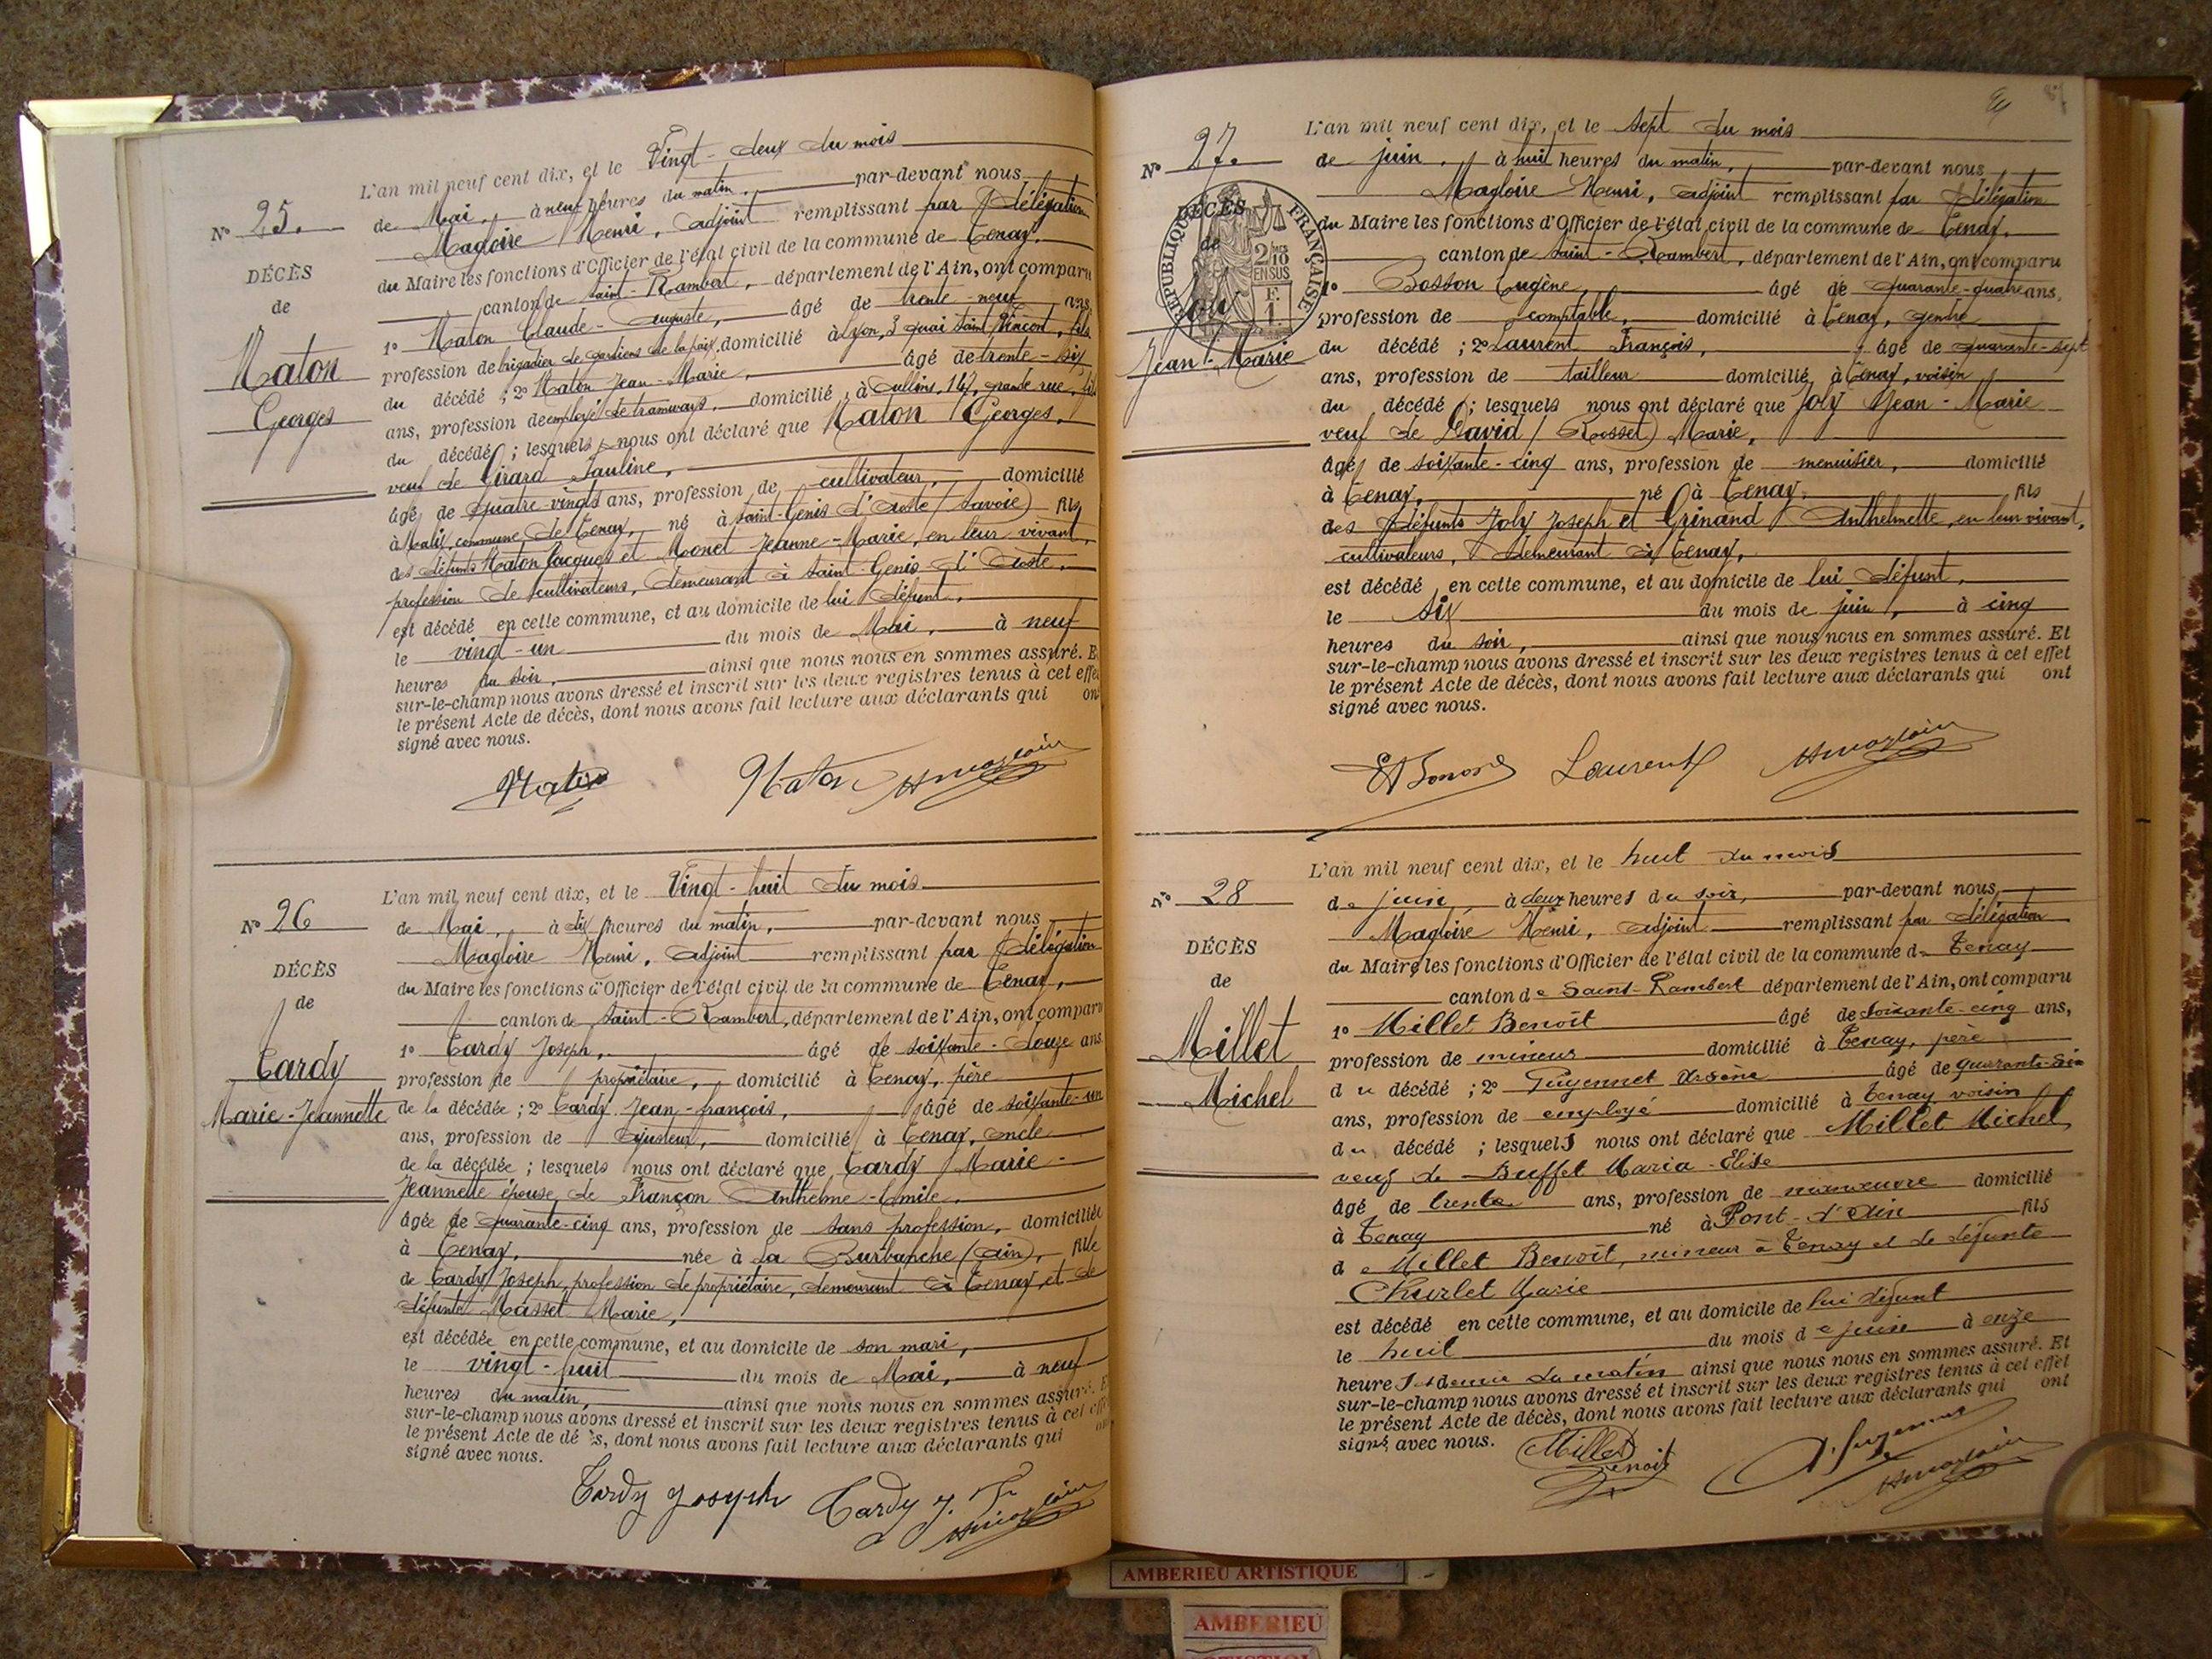 N° 25.
DÉCÈS
de
Maton
Georges
L'an mil neuf cent dix, et le Vingt-deux du mois
de Mai, à neuf heures du matin, par-devant nous
Magloire Henri, adjoint remplissant par délégation
du Maire les fonctions d'Officier de l'état civil de la commune de Tenay,
canton de Saint-Rambert, département de l'Ain, ont comparu
1° Maton Claude-Auguste, âgé de trente-neuf ans,
profession de brigadier de gardiens de la paix, domicilié à Lyon, 3 quai Saint Vincent, fils
du décédé ; 2° Maton Jean-Marie, âgé de trente-six
ans, profession de employé de tramways, domicilié à Oullins, 147, grande rue, fils
du décédé ; lesquels nous ont déclaré que Maton Georges,
veuf de Girard Pauline,
âgé de quatre-vingts ans, profession de cultivateur, domicilié
à Malix, commune de Tenay, né à Saint-Genis d'Aoste (Savoie) fils
des défunts Maton Jacques et Monet Jeanne-Marie, en leur vivant,
profession de cultivateurs, demeurant à Saint-Genis-d'Aoste,
est décédé en cette commune, et au domicile de lui défunt,
le vingt-un du mois de Mai, à neuf
heures du soir, ainsi que nous nous en sommes assuré. E
sur-le-champ nous avons dressé et inscrit sur les deux registres tenus à cet effe
le présent Acte de décès, dont nous avons fait lecture aux déclarants qui on
signé avec nous.
Maton Maton Hmagloire
N° 26
DÉCÈS
de
Tardy
Marie-Jeannette
L'an mil neuf cent dix, et le Vingt-huit du mois
de Mai, à dix heures du matin, par-devant nous
Magloire Henri, adjoint remplissant par délégation
du Maire les fonctions d'Officier de l'état civil de la commune de Tenay,
canton de Saint-Rambert, département de l'Ain, ont comparu
1° Tardy Joseph, âgé de soixante-douze ans
profession de propriétaire, domicilié à Tenay, père
de la décédée ; 2° Tardy Jean-françois, âgé de soixante-un
ans, profession de ajusteur, domicilié à Tenay, oncle
de la décédée ; lesquels nous ont déclaré que Tardy Marie-
Jeannette épouse de Françon Anthelme-Emile,
âgée de quarante-cinq ans, profession de sans profession, domiciliée
à Tenay, née à La Burbanche (Ain), fille
de Tardy Joseph, profession de propriétaire, demeurant à Tenay, et de
défunte Masset Marie,
est décédée en cette commune, et au domicile de son mari,
le vingt-huit du mois de Mai, à neuf
heures du matin, ainsi que nous nous en sommes assuré. E
sur-le-champ nous avons dressé et inscrit sur les deux registres tenus à cet effe
le présent Acte de décès, dont nous avons fait lecture aux déclarants qui on
signé avec nous.
Tardy Joseph Tardy J. F. Hmagloire
N° 27.
DÉCÈS
de
Joly
Jean-Marie
RÉPUBLIQUE FRANÇAISE
2/10 MES
EN SUS
F.
1.
L'an mil neuf cent dix, et le sept du mois
de juin, à huit heures du matin, par-devant nous
Magloire Henri, adjoint remplissant par délégation
du Maire les fonctions d'Officier de l'état civil de la commune de Tenay,
canton de Saint-Rambert, département de l'Ain, ont comparu
1° Bosson Eugène, âgé de quarante-quatre ans,
profession de comptable, domicilié à Tenay, gendre
du décédé ; 2° Laurent François, âgé de quarante-sept
ans, profession de tailleur domicilié à Tenay, voisin
du décédé ; lesquels nous ont déclaré que Joly Jean-Marie
veuf de David (Rosset) Marie,
âgé de soixante-cinq ans, profession de menuisier, domicilié
à Tenay, né à Tenay, fils
des défunts Joly Joseph et Grinand Anthelmette, en leur vivant,
cultivateurs, demeurant à Tenay,
est décédé en cette commune, et au domicile de lui défunt,
le six du mois de juin, à cinq
heures du soir, ainsi que nous nous en sommes assuré. Et
sur-le-champ nous avons dressé et inscrit sur les deux registres tenus à cet effet
le présent Acte de décès, dont nous avons fait lecture aux déclarants qui ont
signé avec nous.
Laurent Hmagloire
N° 28
DÉCÈS
de
Millet
Michel
L'an mil neuf cent dix, et le huit du mois
de juin, à deux heures du soir, par-devant nous,
Magloire Henri, adjoint remplissant par délégation
du Maire les fonctions d'Officier de l'état civil de la commune de Tenay
canton de Saint-Rambert département de l'Ain, ont comparu
1° Millet Benoît âgé de soixante-cinq ans,
profession de mineur domicilié à Tenay, père
du décédé ; 2° Guyennet Arsène âgé de quarante-six
ans, profession de employé domicilié à Tenay voisin
du décédé ; lesquels nous ont déclaré que Millet Michel
veuf de Buffet Maria-Elise
âgé de trente ans, profession de manoeuvre domicilié
à Tenay né à Pont-d'Ain fils
de Millet Benoît, mineur à Tenay et de défunte
Churlet Marie
est décédé en cette commune, et au domicile de lui défunt
le huit du mois de juin à onze
heures et demie du matin ainsi que nous nous en sommes assuré. Et
sur-le-champ nous avons dressé et inscrit sur les deux registres tenus à cet effet
le présent Acte de décès, dont nous avons fait lecture aux déclarants qui ont
signé avec nous.
Millet Benoit Hmagloire
AMBERIEU ARTISTIQUE
AMBERIEU